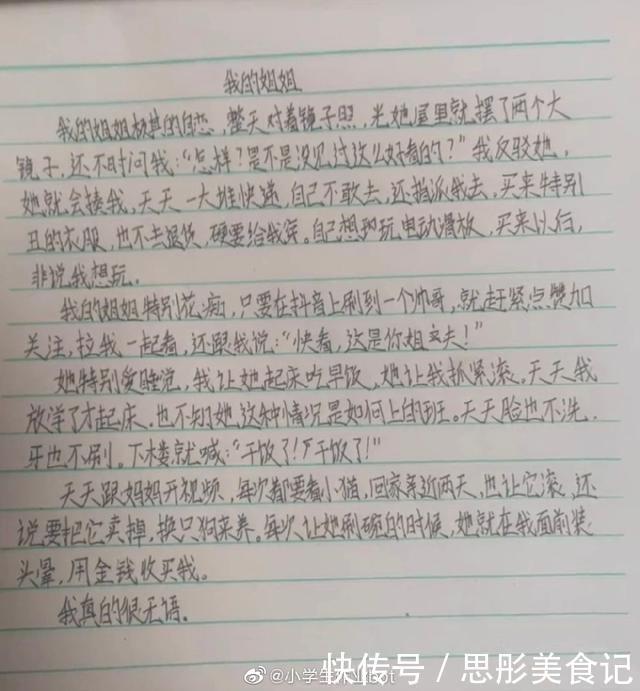 我的姐姐
我的姐姐极其的自恋，整天对着镜子照，光她屋里就摆了两个大
镜子，还不时问我：“怎样？是不是没见过这么好看的？”我反驳她，
她就会揍我，天天一大堆快递，自己不敢去，还指派我去，买来特别
丑的衣服，也不去退货，硬要给我穿。自己想和玩电动滑板，买来以后，
非说我想玩。
我的姐姐特别花痴，只要在抖音上刷到一个帅哥，就赶紧点赞加
关注，拉我一起看，还跟我说：“快看，这是你姐夫！”
她特别爱睡觉，我让她起床吃早饭，她让我抓紧滚。天天我
放学了才起床，也不知她这种情况是如何上的班。天天脸也不洗，
牙也不刷。下楼就喊：“干饭了！干饭了！”
天天跟妈妈开视频，每次都要看小猫，回家亲近两天，也让它滚，还
说要把它卖掉，换只狗来养。每次让她刷碗的时候，她就在我面前装
头晕，用金钱收买我。
我真的很无语。
@小学生
bot
快传号 / 思彤美食记